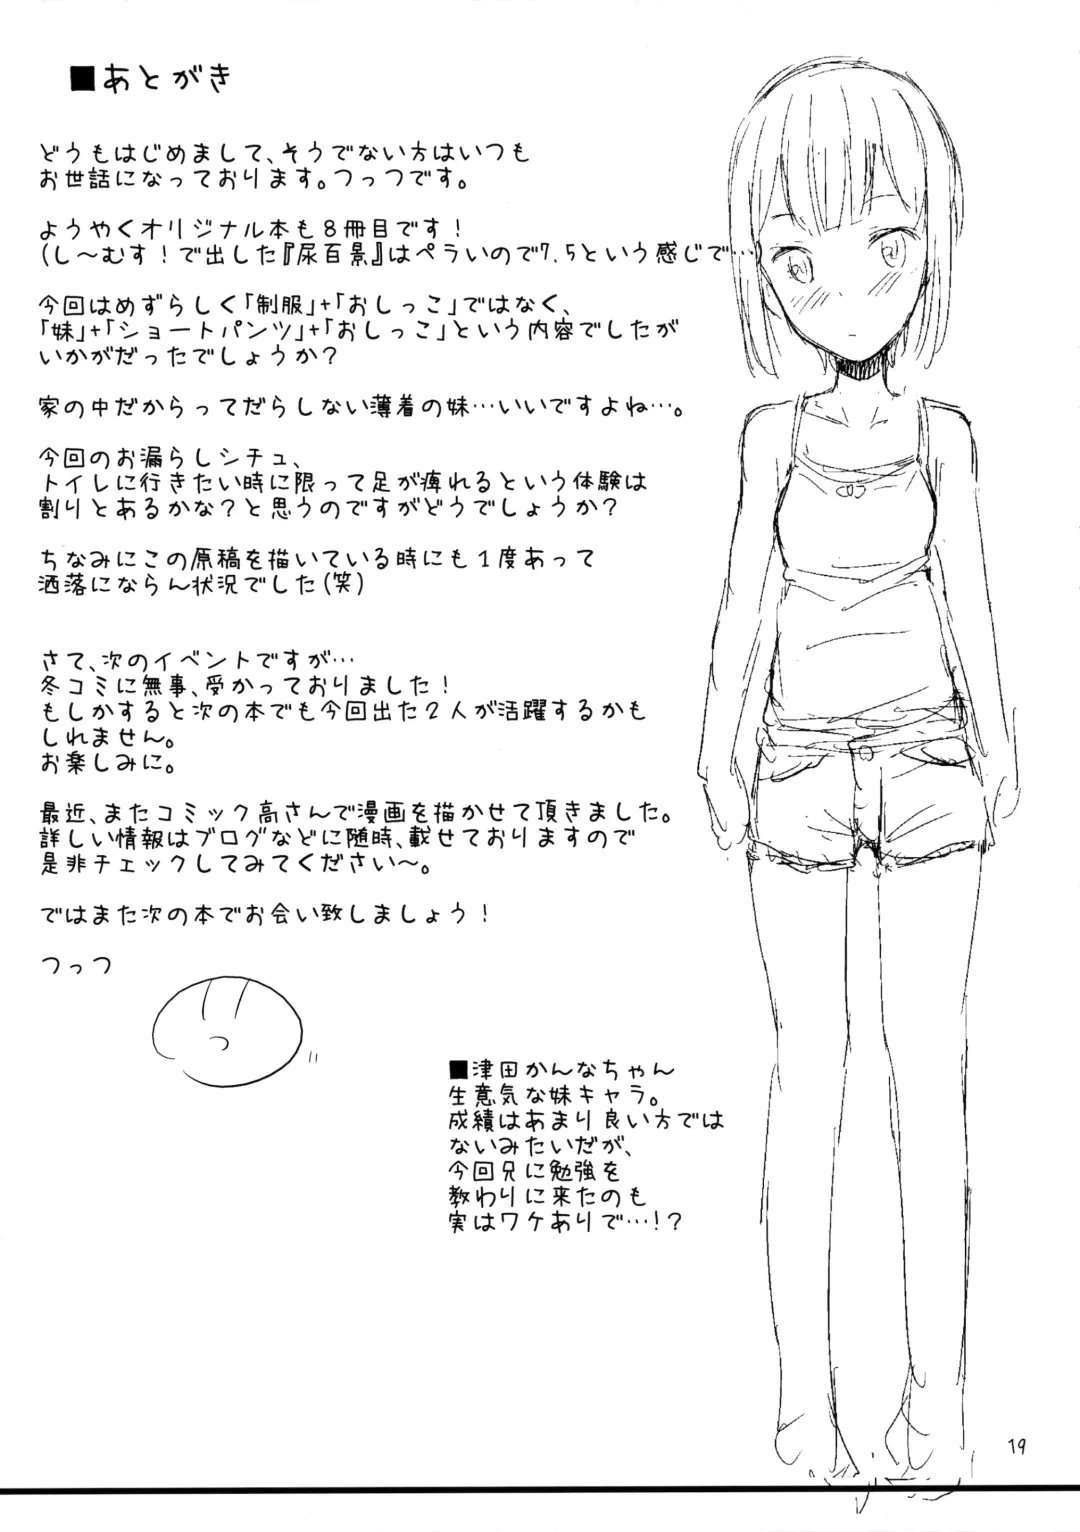 ■あとがき
どうもはじめまして、そうでない方はいつも
お世話になっております。つっつです。
ようやくオリジナル本も8冊目です!
(し〜むす!で出した『尿百景』はペラいので7.5という感じで…
今回はめずらしく「制服」+「おしっこ」ではなく、
「妹」+「ショートパンツ」+「おしっこ」という内容でしたが
いかがだったでしょうか?
家の中だからってだらしない薄着の妹…いいですよね…。
今回のお漏らしシチュ、
トイレに行きたい時に限って足が痺れるという体験は
割りとあるかな?と思うのですがどうでしょうか?
ちなみにこの原稿を描いている時にも1度あって
洒落にならん状況でした(笑)
さて、次のイベントですが…
冬コミに無事、受かっておりました!
もしかすると次の本でも今回出た2人が活躍するかも
しれません。
お楽しみに。
最近、またコミック高さんで漫画を描かせて頂きました。
詳しい情報はブログなどに随時、載せておりますので
是非チェックしてみてください〜。
ではまた次の本でお会い致しましょう!
つっつ
■津田かんなちゃん
生意気な妹キャラ。
成績はあまり良い方では
ないみたいだが、
今回兄に勉強を
教わりに来たのも
実はワケありで…!?
19